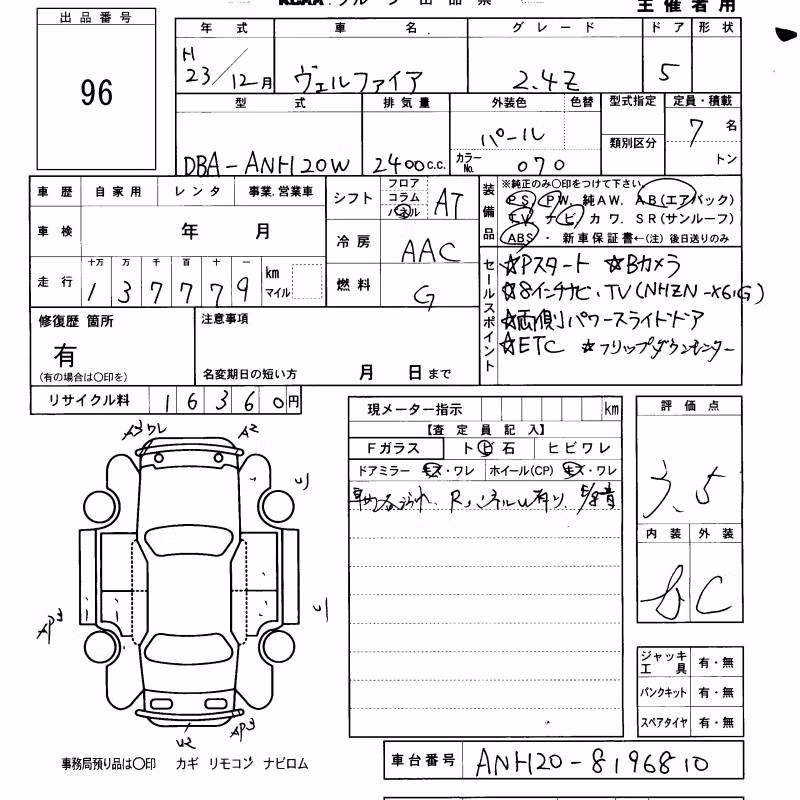 主催者用
出品番号
96
年式 車名 グレード ドア 形状
H
23/12月 ヴェルファイア 2.4Z 5
型式 排気量 外装色 色替 型式指定 定員・積載
類別区分
DBA-ANH20W 2400c.c. パール カラーNo. 070 7名
トン
車歴 自家用 レンタ 事業.営業車
車検 年 月
走行 十万 万 千 百 十 一
1 3 7 7 7 9 km マイル
シフト フロア コラム パネル AT
冷房 AAC
燃料 G
装備品
※純正のみ〇印をつけて下さい。
PS PW. 純AW. AB(エアバック)
TV ナビ カワ. SR(サンルーフ)
ABS・ 新車保証書←(注) 後日送りのみ
セールスポイント
☆Pスタート ☆Bカメラ
☆8インチナビ・TV(NHZN-X61G)
☆両側パワースライドドア
☆ETC ☆フリップダウンモニター
修復歴 箇所
有
(有の場合は〇印を)
注意事項
名変期日の短い方 月 日まで
リサイクル料 1 6 3 6 0 円
現メーター指示 km
【査定員記入】
Fガラス ト ビ 石 ヒビワレ
ドアミラー キズ・ワレ ホイール(CP) キズ・ワレ
評価点
3.5
内装 外装
B C
A3 ワレ A2
U
AP3 U
U2 AP3
ジャッキ工具 有・無
パンクキット 有・無
スペアタイヤ 有・無
事務局預り品は〇印 カギ リモコン ナビロム
車台番号 ANH20-8196810